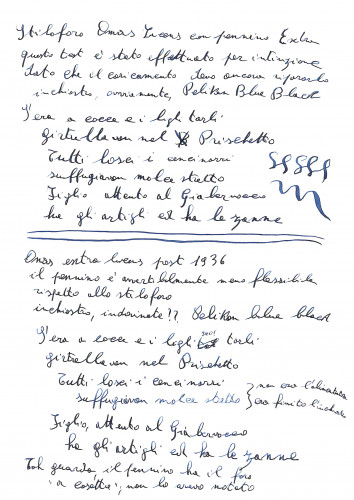 Stiloforo Omas Lucens con pennino Extra
questo test è stato effettuato per intinzione
dato che il caricamento devo ancora ripararlo
inchiostro, ovviamente, Pelikan Blue Black
S'era a cocce e i ligli tarli
girtrellavan nel Prischetto
Tutti losci i cencinarri
suffuggiavan molce stretto
Figlio attento al Giabervocco
ha gli artigli ed ha le zanne
Omas extra lucens post 1936
il pennino è avvertibilmente meno flessibile
rispetto allo stiloforo
inchiostro, indovinate!? Pelikan blue black
S'era a cocce e i ligli tarli
girtrellavan nel Prischetto
Tutti losci i cencinarri
suffuggiavan molce stretto
non era l'alimentatore
era finito l'inchiostro
Figlio, attento al Giabervocco
ha gli artigli ed ha le zanne
Toh guarda il pennino ha il foro
"a cosetta", non lo avevo notato